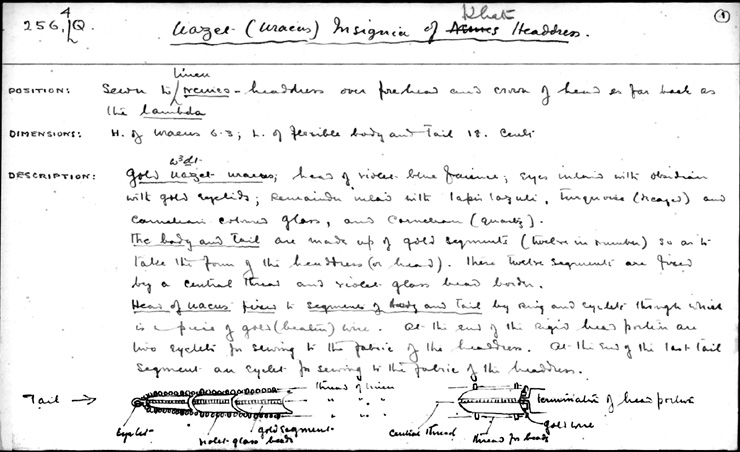 256, 4 Q. Uazet-(Uraeus) Insignia of Nemes Khat Headdress. (1)
POSITION: Sewn to linen nemes-headdress over forehead and crown of head as far back as
the lambda
DIMENSIONS: H. of uraeus 6.3; L. of flexible body and Tail 18. Cents
DESCRIPTION: Gold Uazet uraeus; head of violet-blue faience; eyes inlaid with obsidian
with gold eyelids; remainder inlaid with lapis lazuli, turquoise (decayed) and
carnelian coloured glass, and carnelian (quartz).
The body and tail are made up of gold segments (twelve in number) so as to
take the form of the headdress (or head). These twelve segments are fixed
by a central thread and violet glass bead border.
Head of uraeus fixed to segments of body and tail by ring and eyelets through which
is a piece of gold (beaten) wire. At the end of the rigid head portion are
two eyelets for sewing to the fabric of the headdress. At the end of the last tail
segment an eyelet for sewing to the fabric of the headdress.
Tail → thread of linen
" " " termination of head portion
" " "
eyelet violet-glass beads gold segment central thread thread for beads gold wire